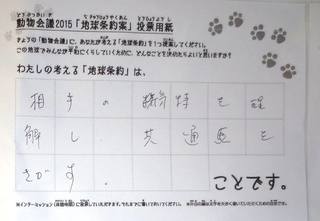 動物会議2015「地球条約案」投票用紙
きょうの「動物会議」に、あなたが考える「地球条約」を1つ提案してください。
この地球でみんなが平和にくらしていくために、どんなことを決めたらよいと思いますか？
わたしの考える「地球条約」は、
相手の 特を理
解し、共通点を
さがす。
ことです。